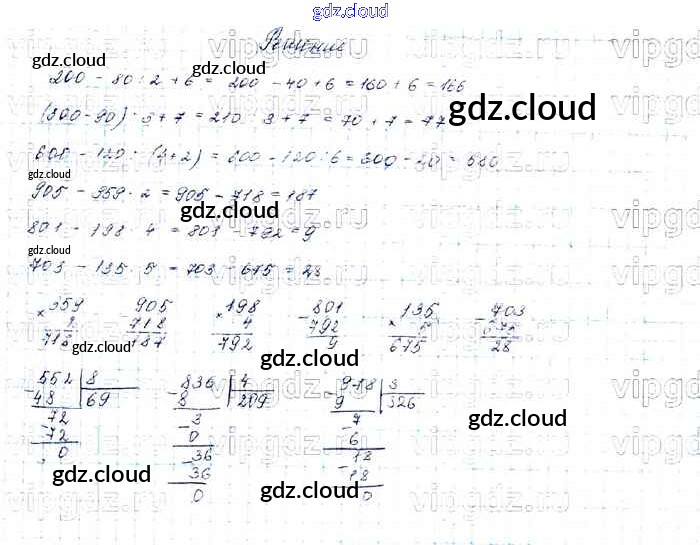 gdz.cloud
Решение
200 - 80 : 2 + 6 = 200 - 40 + 6 = 160 + 6 = 166
(300 - 90) : 3 + 7 = 210 : 3 + 7 = 70 + 7 = 77
600 - 120 : (4+2) = 600 - 120 : 6 = 600 - 20 = 580
905 - 359 · 2 = 905 - 718 = 187
801 - 198 · 4 = 801 - 792 = 9
703 - 135 · 5 = 703 - 675 = 28
× 359 - 905 × 198 - 801 × 135 - 703
2 718 4 792 5 675
718 187 792 9 675 28
- 552 | 8 - 836 | 4 - 978 | 3
48 | 69 8 | 209 9 | 326
- 72 - 3 - 7
72 0 6
0 - 36 - 18
36 18
0 0
gdz.cloud
gdz.cloud
gdz.cloud
gdz.cloud
gdz.cloud
gdz.cloud
gdz.cloud
gdz.cloud
gdz.cloud
gdz.cloud
gdz.cloud
vipgdz.ru